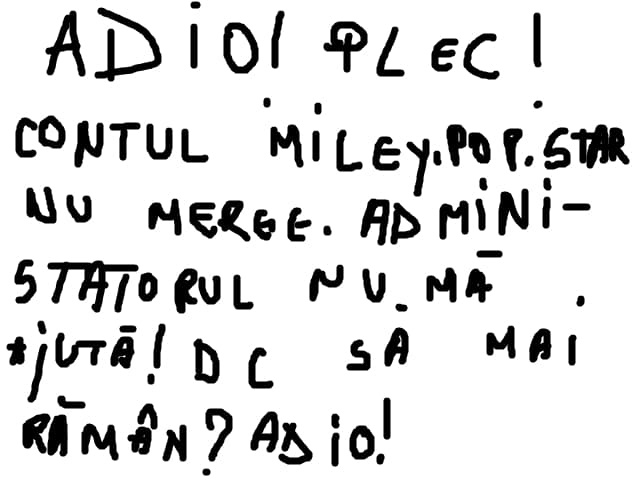 ADIO! PLEC!
CONTUL MILEY.POP.STAR
NU MERGE. ADMINI-
STATORUL NU MĂ
AJUTĂ! DC SĂ MAI
RĂMÂN? ADIO!